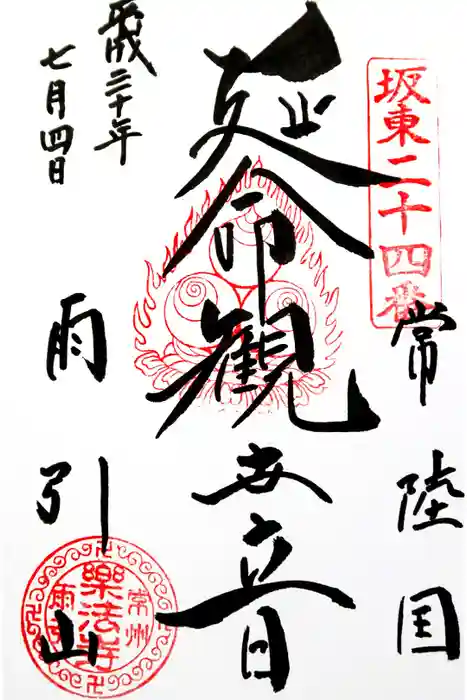 坂東二十四番
常陸国
延命観世音
雨引山
平成二十年
七月四日
常州
樂法寺
雨引